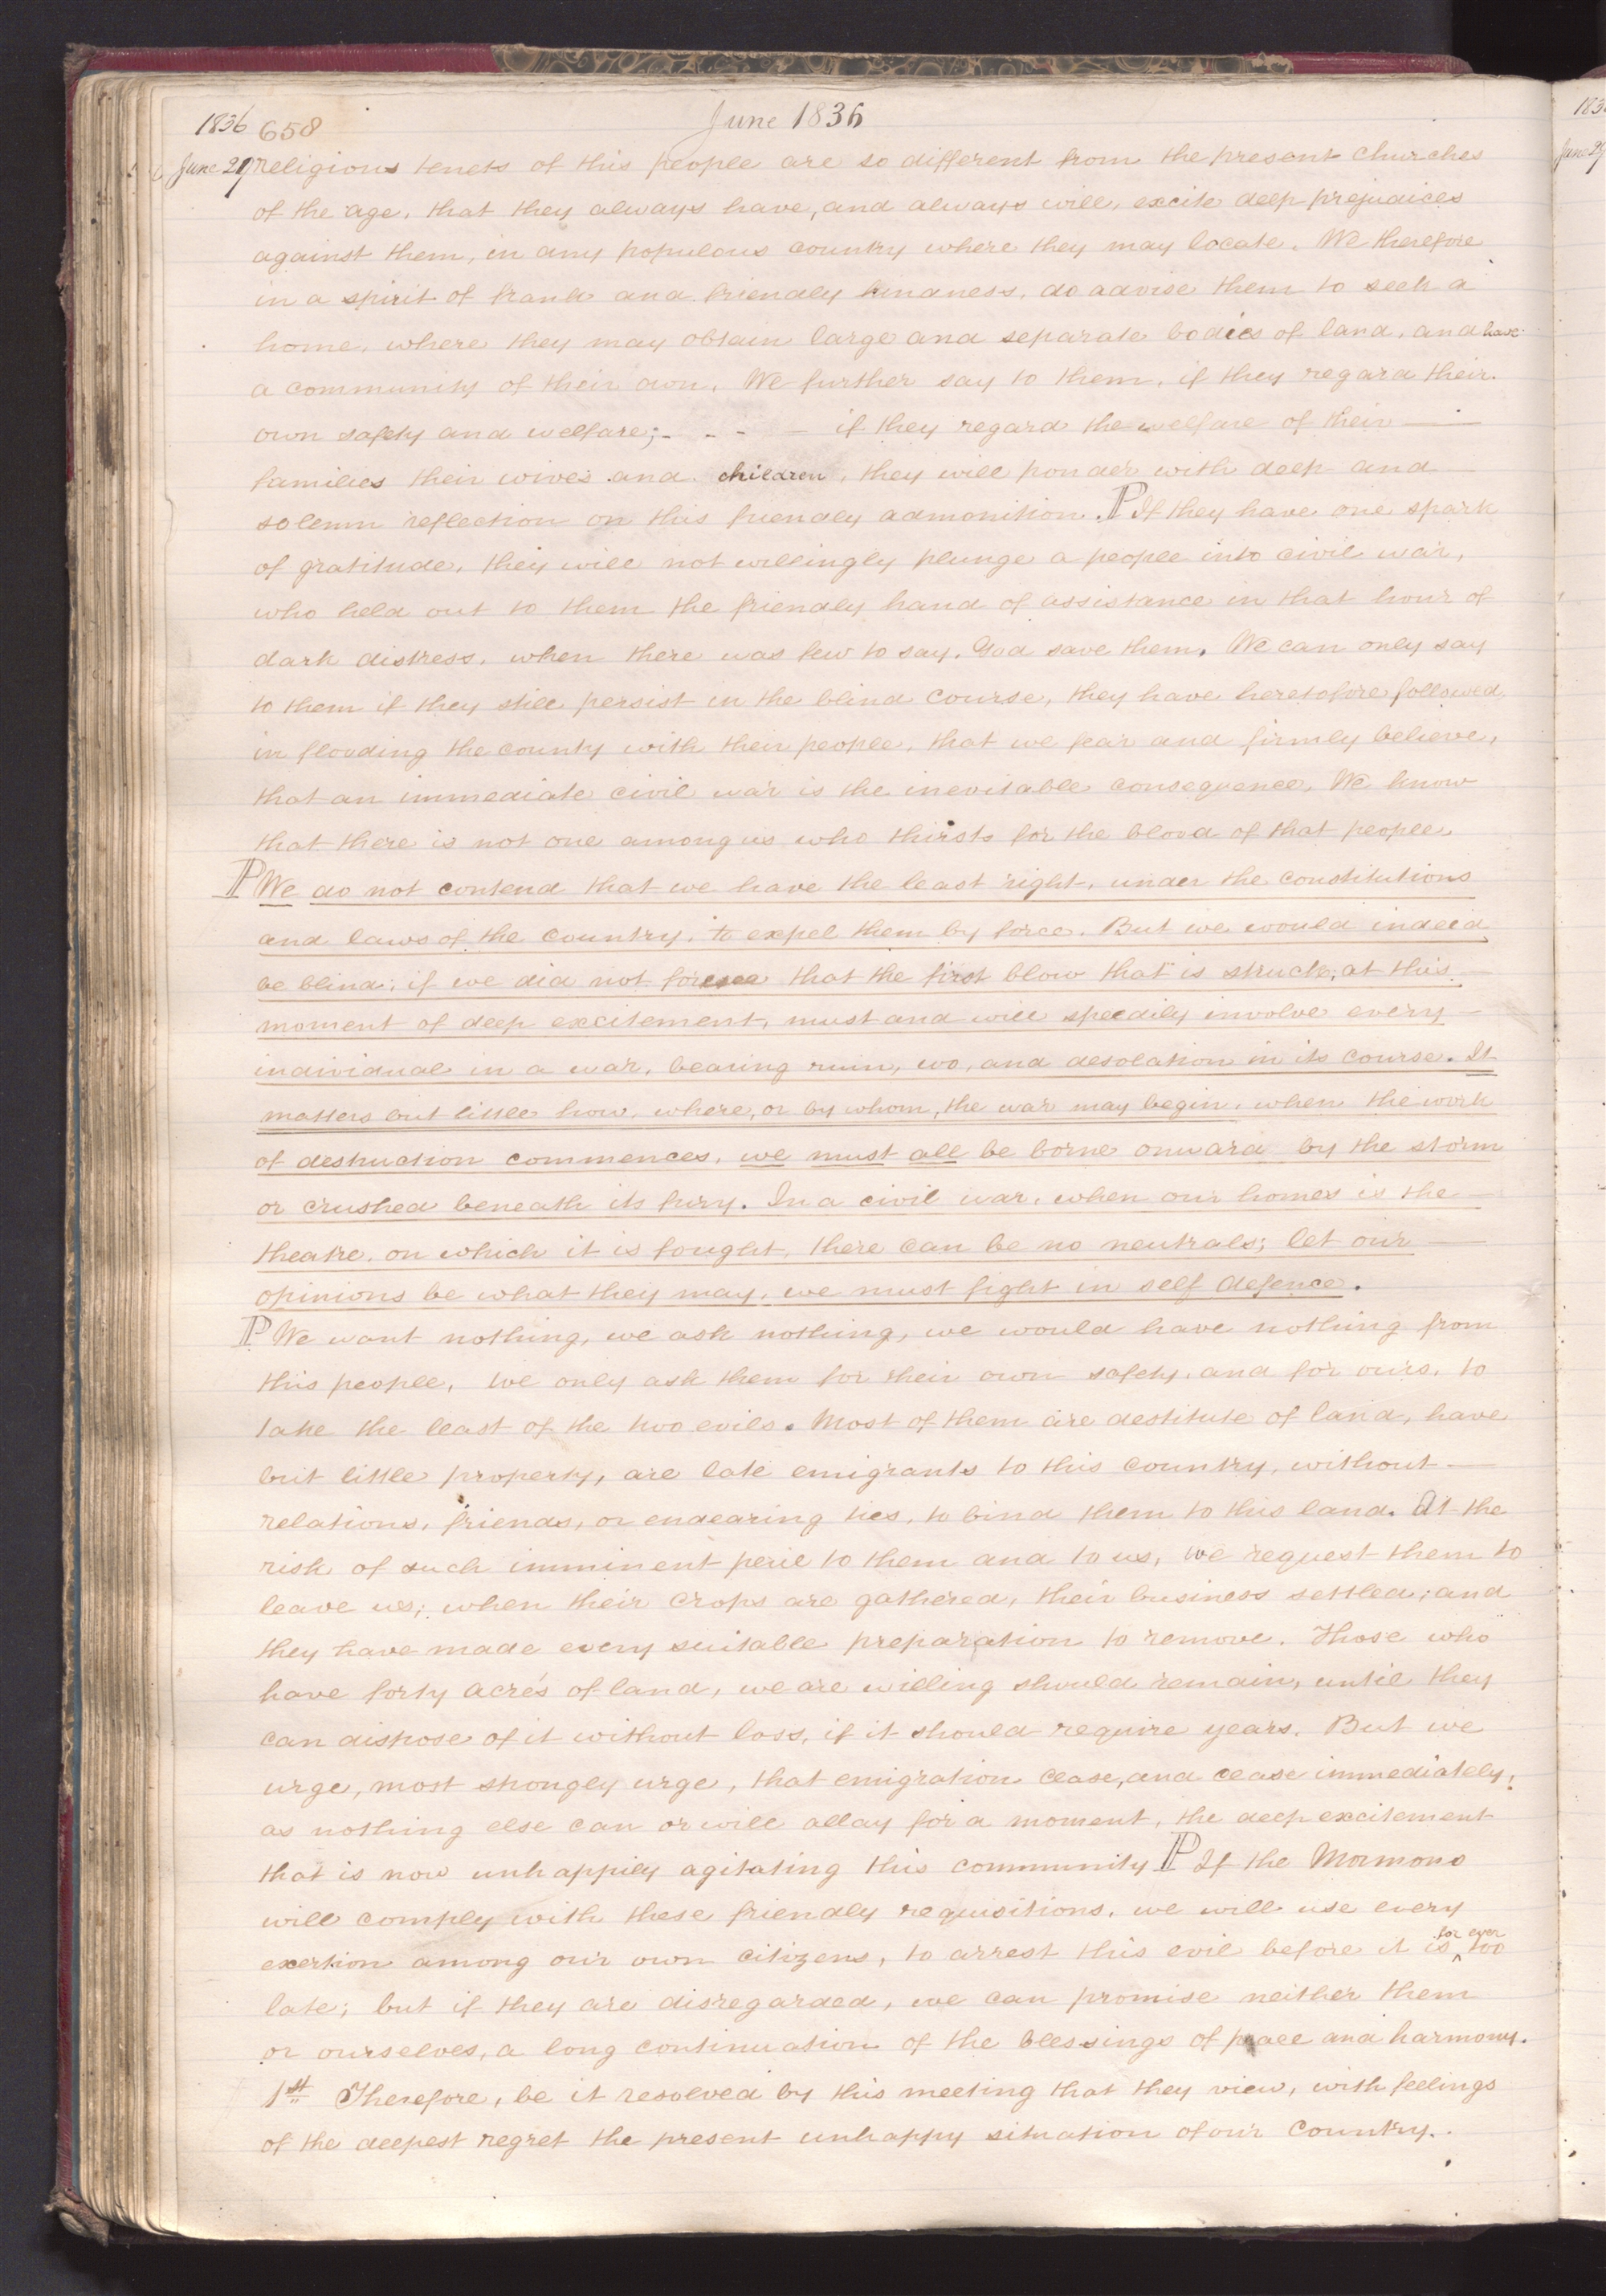 1836 658 June 1836
June 29 religious tenets of this people are so different from the present churches
of the age, that they always have, and always will, excite deep prejudices
against them, in any populous country where they may locate. We therefore
in a spirit of frank and friendly kindness, do advise them to seek a
home, where they may obtain large and separate bodies of land, and have
a community of their own. We further say to them, if they regard their
own safety and welfare; - - - - if they regard the welfare of their —
families their wives and children, they will ponder with deep and
solemn reflection on this friendly admonition. P If they have one spark
of gratitude, they will not willingly plunge a people into civil war,
who held out to them the friendly hand of assistance in that hour of
dark distress, when there was few to say, God save them. We can only say
to them if they still persist in the blind course, they have heretofore followed
in flooding the county with their people, that we fear and firmly believe,
that an immediate civil war is the inevitable consequence. We know
that there is not one among us who thirsts for the blood of that people.
P We do not contend that we have the least right, under the constitutions
and laws of the country, to expel them by force. But we would indeed
be blind, if we did not foresee that the first blow that is struck, at this —
moment of deep excitement, must and will speedily involve every —
individual in a war, bearing ruin, wo, and desolation in its course. It
matters but little how, where, or by whom, the war may begin, when the work
of destruction commences, we must all be borne onward by the storm
or crushed beneath its fury. In a civil war, when our homes is the —
theatre, on which it is fought, there can be no neutrals; let our —
opinions be what they may, we must fight in self defence.
P We want nothing, we ask nothing, we would have nothing from
this people, we only ask them for their own safety, and for ours, to
take the least of the two evils. Most of them are destitute of land, have
but little property, are late emigrants to this country, without —
relations, friends, or endearing ties, to bind them to this land. At the
risk of such imminent peril to them and to us, we request them to
leave us; when their crops are gathered, their business settled; and
they have made every suitable preparation to remove. Those who
have forty acres of land, we are willing should remain, until they
can dispose of it without loss, if it should require years. But we
urge, most strongly urge, that emigration cease, and cease immediately,
as nothing else can or will allay for a moment, the deep excitement
that is now unhappily agitating this community P If the Mormons
will comply with these friendly requisitions, we will use every
exertion among our own citizens, to arrest this evil before it is for ever too
late; but if they are disregarded, we can promise neither them
or ourselves, a long continuation of the blessings of peace and harmony.
1st Therefore, be it resolved by this meeting that they view, with feelings
of the deepest regret the present unhappy situation of our Country.
183
June 29